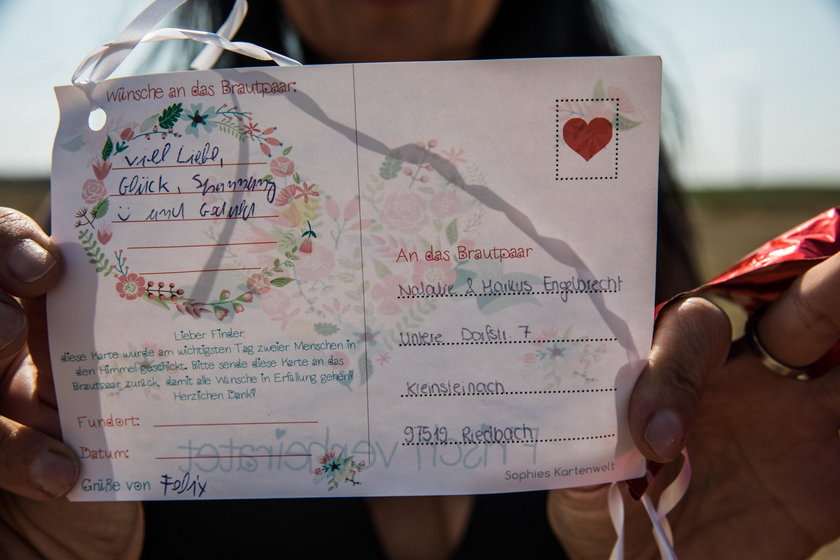 Wünsche an das Brautpaar:
Viel Liebe,
Glück, Spannung
☺ und Geduld
Lieber Finder,
diese Karte wurde am wichtigsten Tag zweier Menschen in
den Himmel geschickt. Bitte sende diese Karte an das
Brautpaar zurück, damit alle Wünsche in Erfüllung gehen!
Herzlichen Dank!
Fundort:
Datum:
Grüße von Felix
An das Brautpaar
Natalie & Markus Engelbrecht
Untere Dorfstr. 7
Kleinsteinach
97519 Riedbach
Sophies Kartenwelt
Frisch verheiratet